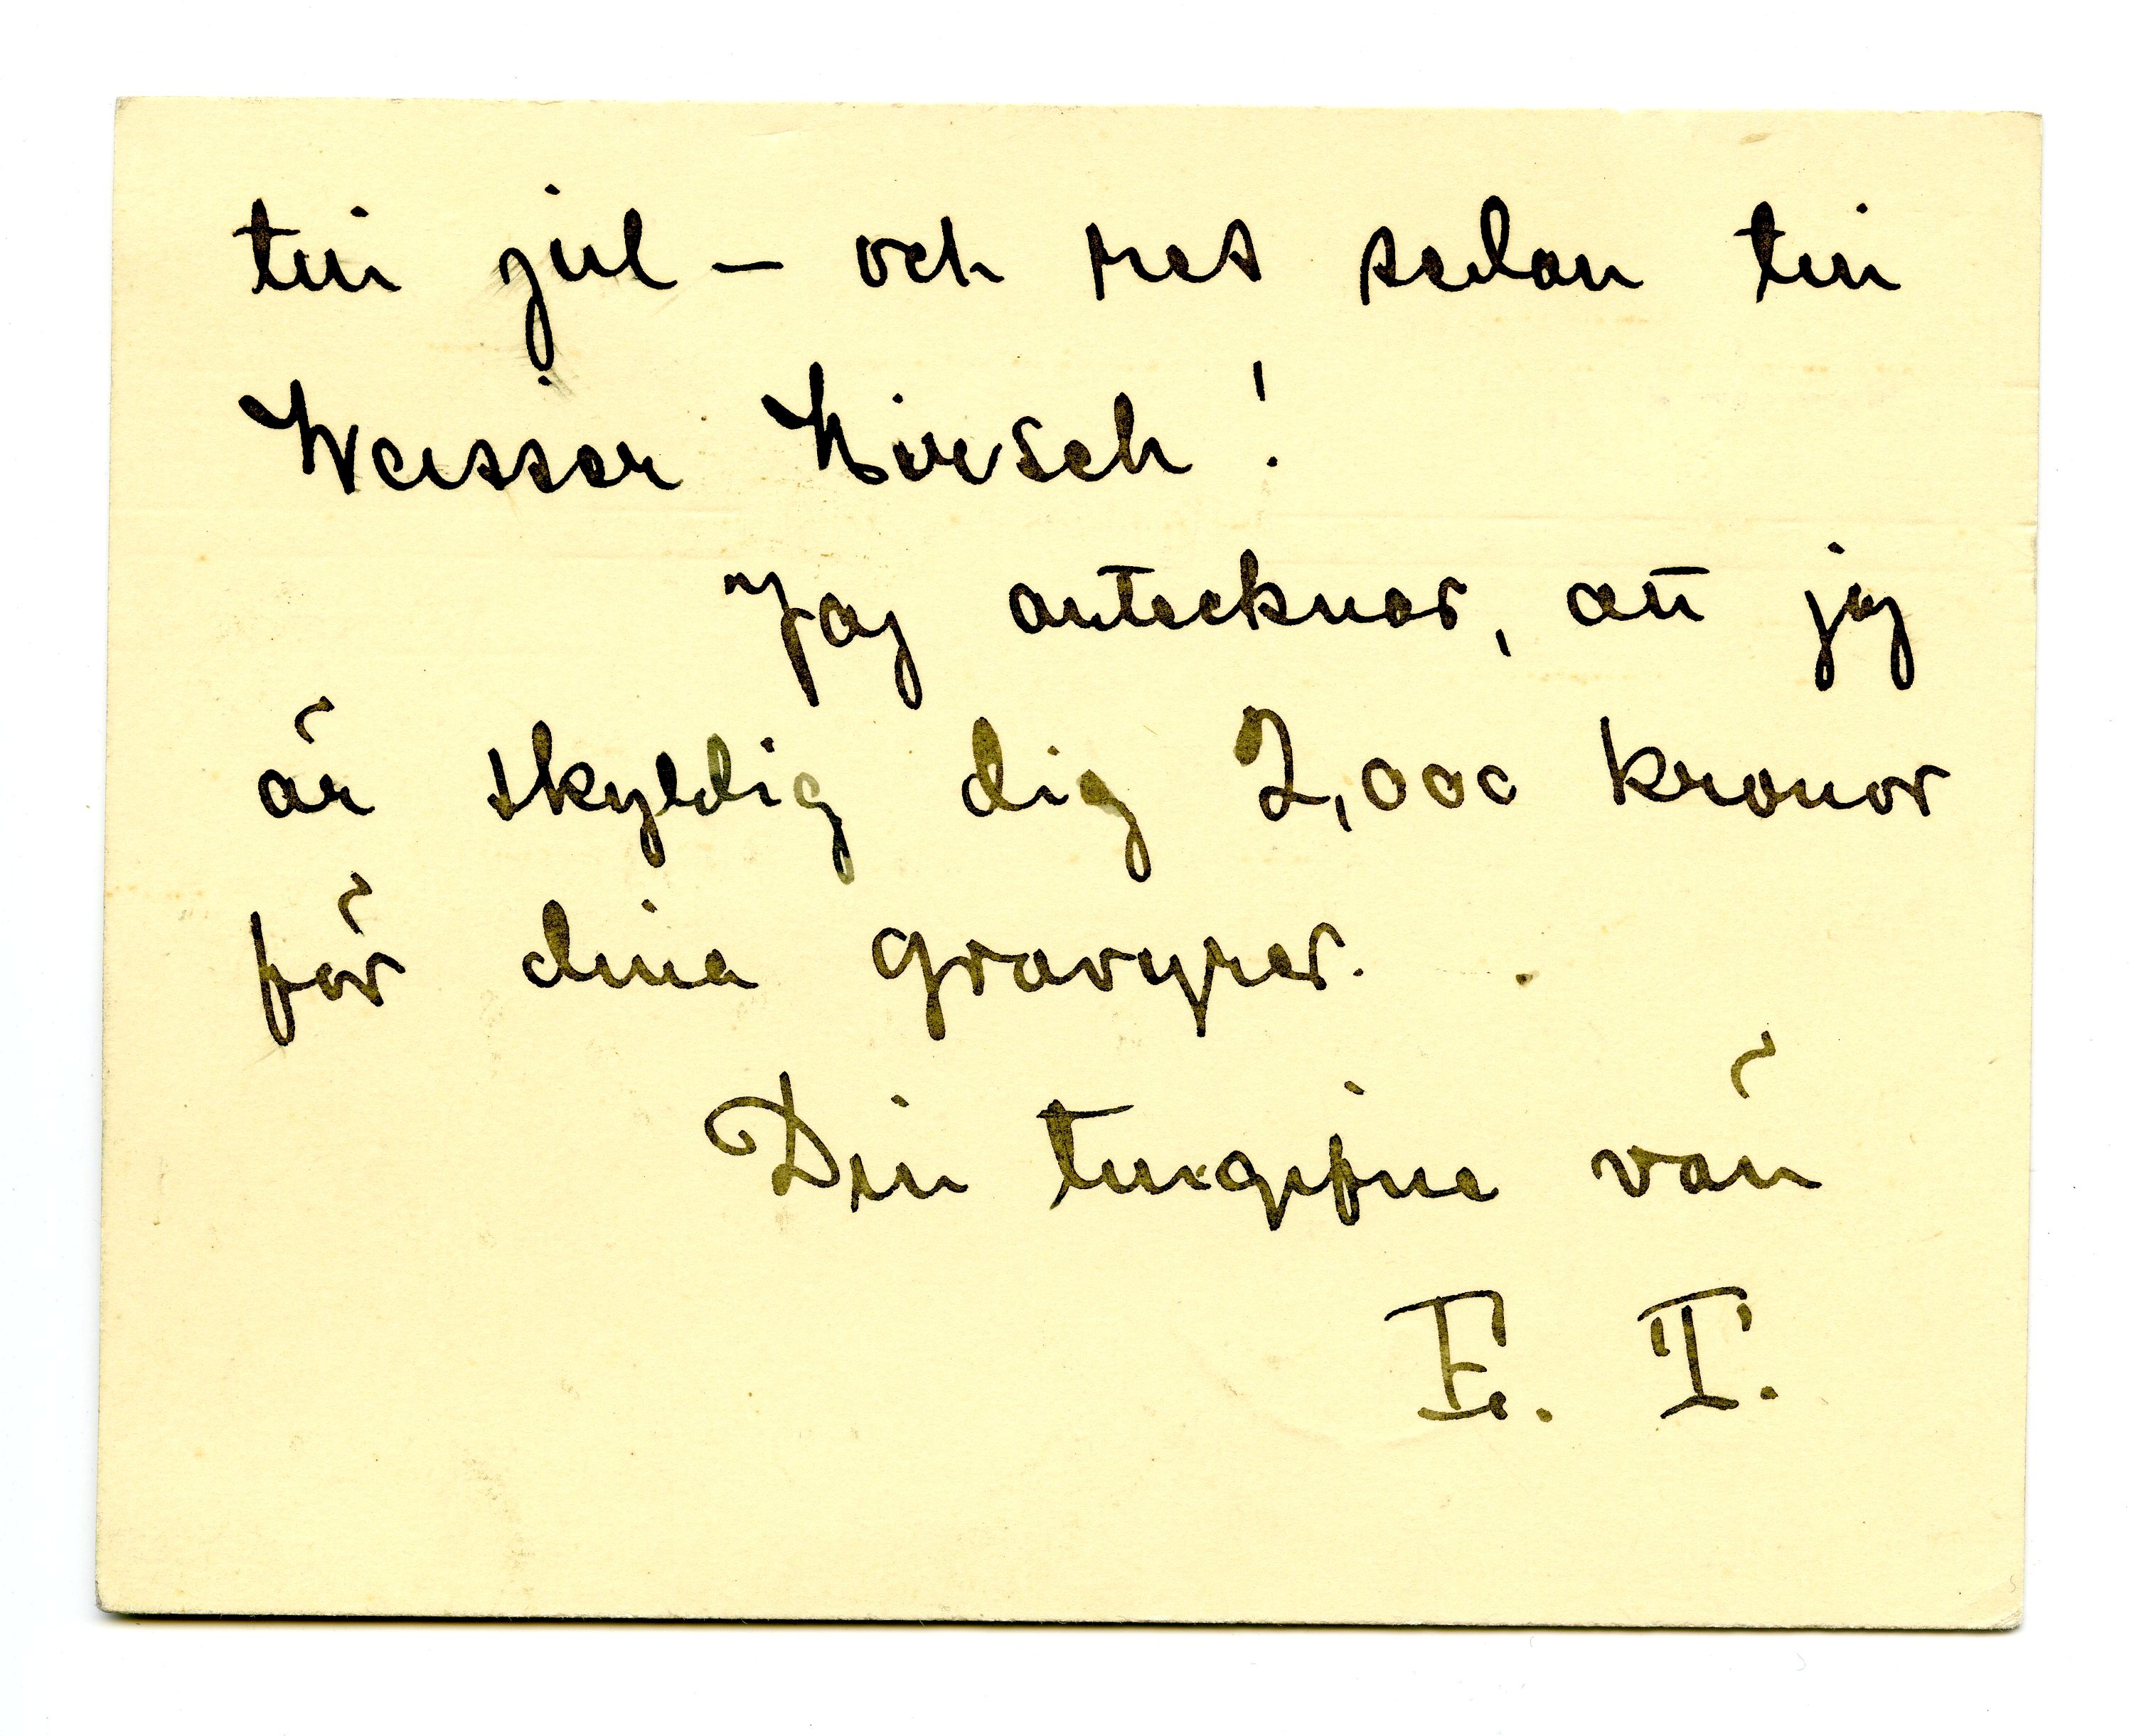 till jul – och res sedan till
Weisser Hirsch!
Jag antecknar, att jag
är skyldig dig 2,000 kronor
för dina gravyrer.
Din tillgifne vän
E. T.